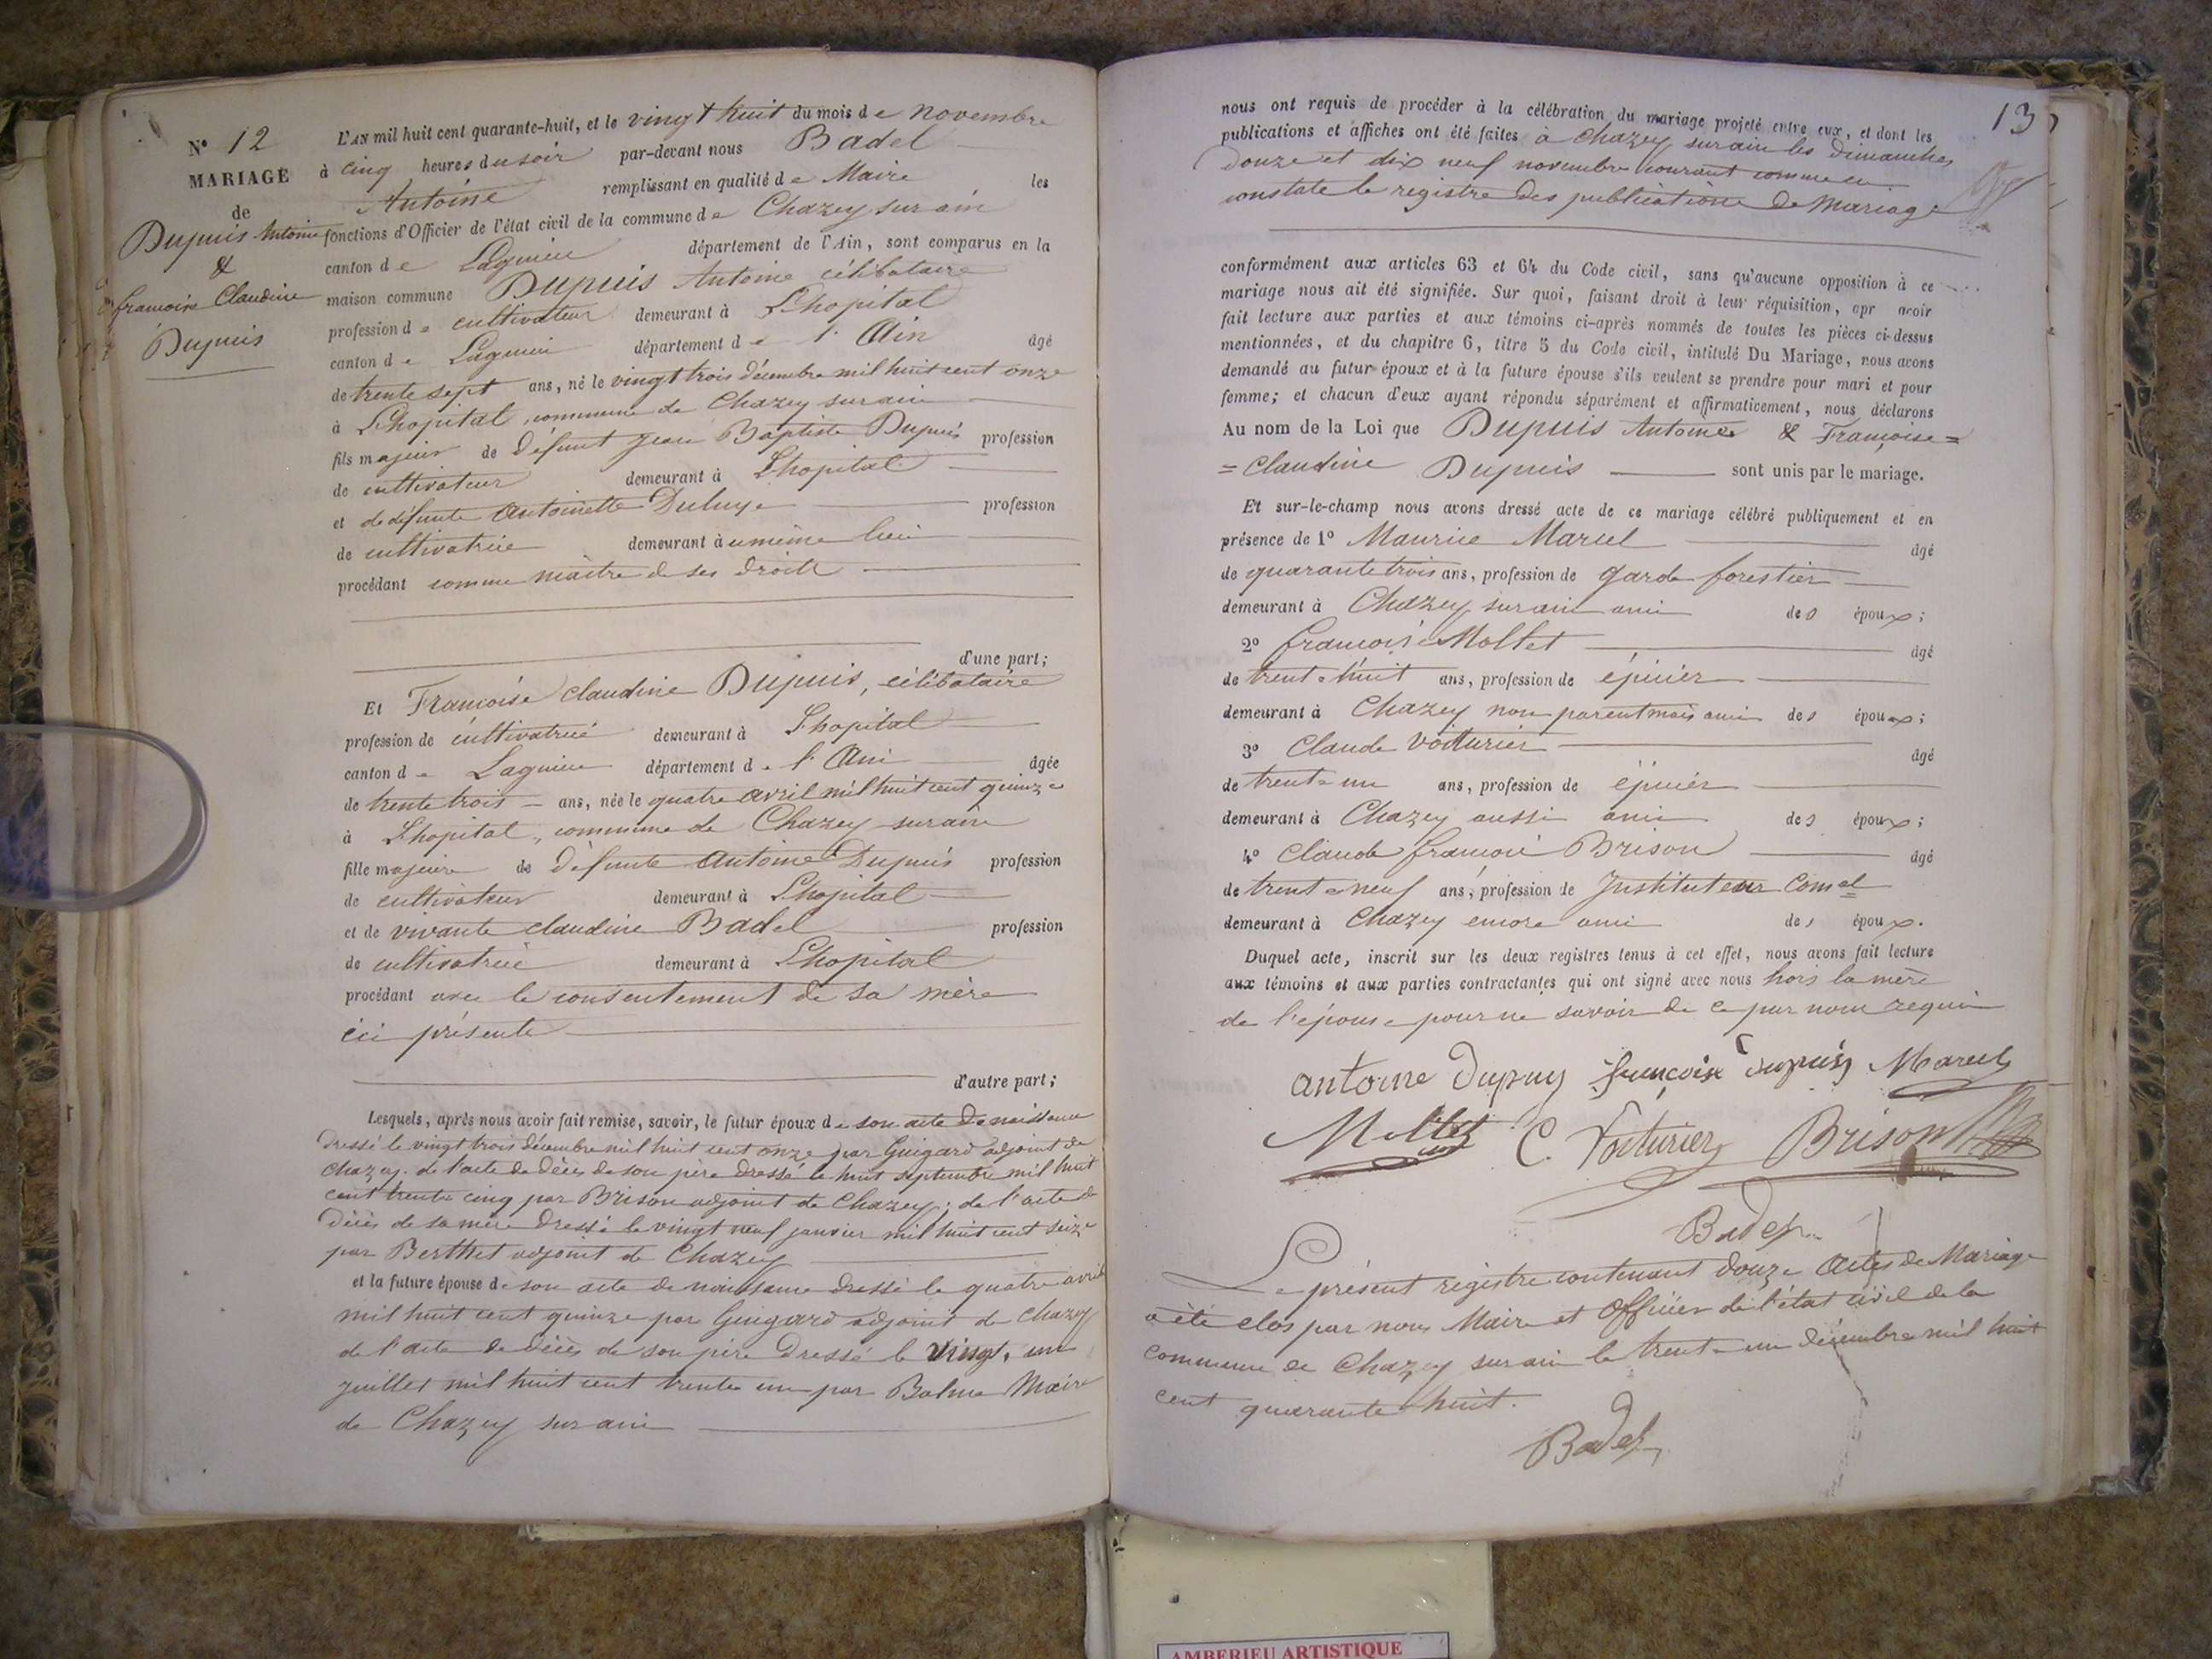 N° 12
MARIAGE
de
Dupuis Antoine
&
françoise Claudine
Dupuis
L'AN mil huit cent quarante-huit, et le vingt huit du mois de novembre
à cinq heures du soir par-devant nous Badel
Antoine remplissant en qualité de Maire les
fonctions d'Officier de l'état civil de la commune de Chazey sur ain
canton de Lagnieu département de l'Ain, sont comparus en la
maison commune Dupuis Antoine célibataire
profession de cultivateur demeurant à Lhopital
canton de Lagnieu département de l'Ain âgé
de trente sept ans, né le vingt trois décembre mil huit cent onze
à Lhopital, commune de Chazey sur ain
fils majeur de défunt Jean Baptiste Dupuis profession
de cultivateur demeurant à Lhopital
et de défunte Antoinette profession
de cultivatrice demeurant à u même lieu
procédant comme maître de ses droits
d'une part;
Et Françoise Claudine Dupuis, célibataire
profession de cultivatrice demeurant à Lhopital
canton de Lagnieu département de l'Ain âgée
de trente trois ans, née le quatre avril mil huit cent quinze
à Lhopital, commune de Chazey sur ain
fille majeure de défunte Antoine Dupuis profession
de cultivateur demeurant à Lhopital
et de vivante claudine Badel profession
de cultivatrice demeurant à Lhopital
procédant avec le consentement de sa mère
ici présente
d'autre part;
Lesquels, après nous avoir fait remise, savoir, le futur époux de son acte de naissance
dressé le vingt trois décembre mil huit cent onze par Guigard adjoint de
Chazey. de l'acte de décès de son père dressé le huit septembre mil huit
cent trente cinq par Brison adjoint de Chazey; de l'acte de
décès de sa mère dressé le vingt neuf janvier mil huit cent seize
par Berthet adjoint de Chazey
et la future épouse de son acte de naissance dressé le quatre avril
mil huit cent quinze par Guigard adjoint de Chazey
de l'acte de décès de son père dressé le vingt, un
juillet mil huit cent trente un par Balme Maire
de Chazey sur ain
13
nous ont requis de procéder à la célébration du mariage projeté entre eux, et dont les
publications et affiches ont été faites à Chazey sur ain les dimanches
douze et dix neuf novembre courant comme en
constate le registre des publications de mariage
conformément aux articles 63 et 64 du Code civil, sans qu'aucune opposition à ce
mariage nous ait été signifiée. Sur quoi, faisant droit à leur réquisition, apr avoir
fait lecture aux parties et aux témoins ci-après nommés de toutes les pièces ci-dessus
mentionnées, et du chapitre 6, titre 5 du Code civil, intitulé Du Mariage, nous avons
demandé au futur époux et à la future épouse s'ils veulent se prendre pour mari et pour
femme; et chacun d'eux ayant répondu séparément et affirmativement, nous déclarons
Au nom de la Loi que Dupuis Antoine & Françoise =
= Claudine Dupuis sont unis par le mariage.
Et sur-le-champ nous avons dressé acte de ce mariage célébré publiquement et en
présence de 1° Maurice Marcel âgé
de quarante trois ans, profession de garde forestier
demeurant à Chazey sur ain ami des époux;
2° françois Mollet âgé
de trente huit ans, profession de épicier
demeurant à Chazey non parent mais ami des époux;
3° Claude Voiturier âgé
de trente un ans, profession de épicier
demeurant à Chazey aussi ami des époux;
4° Claude françois Brison âgé
de trente neuf ans, profession de Instituteur Comal
demeurant à Chazey encore ami des époux.
Duquel acte, inscrit sur les deux registres tenus à cet effet, nous avons fait lecture
aux témoins et aux parties contractantes qui ont signé avec nous hors la mère
de l'épouse pour ne savoir de ce par nous requis
antoine Dupuy françoise dupuis Marcel
Mollet C. Voiturier Brison
Badel
Le présent registre contenant douze Actes de Mariage
a été clos par nous Maire et Officier de l'état civil de la
commune de Chazey sur ain le trente un décembre mil huit
cent quarante huit.
Badel
AMBERIEU ARTISTIQUE